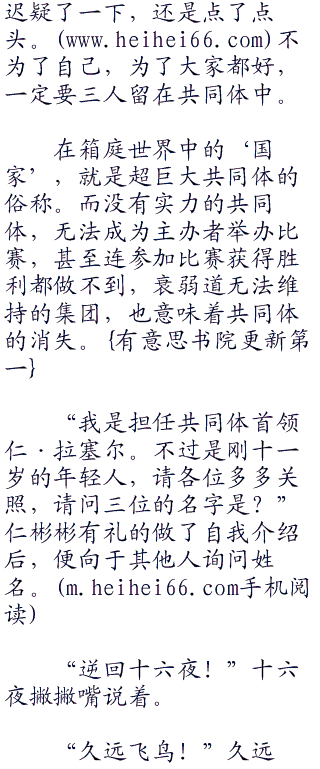 迟疑了一下，还是点了点
头。(www.heihei66.com)不
为了自己，为了大家都好，
一定要三人留在共同体中。
在箱庭世界中的‘国
家’，就是超巨大共同体的
俗称。而没有实力的共同
体，无法成为主办者举办比
赛，甚至连参加比赛获得胜
利都做不到，衰弱道无法维
持的集团，也意味着共同体
的消失。{有意思书院更新第
一}
“我是担任共同体首领
仁·拉塞尔。不过是刚十一
岁的年轻人，请各位多多关
照，请问三位的名字是？”
仁彬彬有礼的做了自我介绍
后，便向于其他人询问姓
名。(m.heihei66.com手机阅
读)
“逆回十六夜！”十六
夜撇撇嘴说着。
“久远飞鸟！”久远